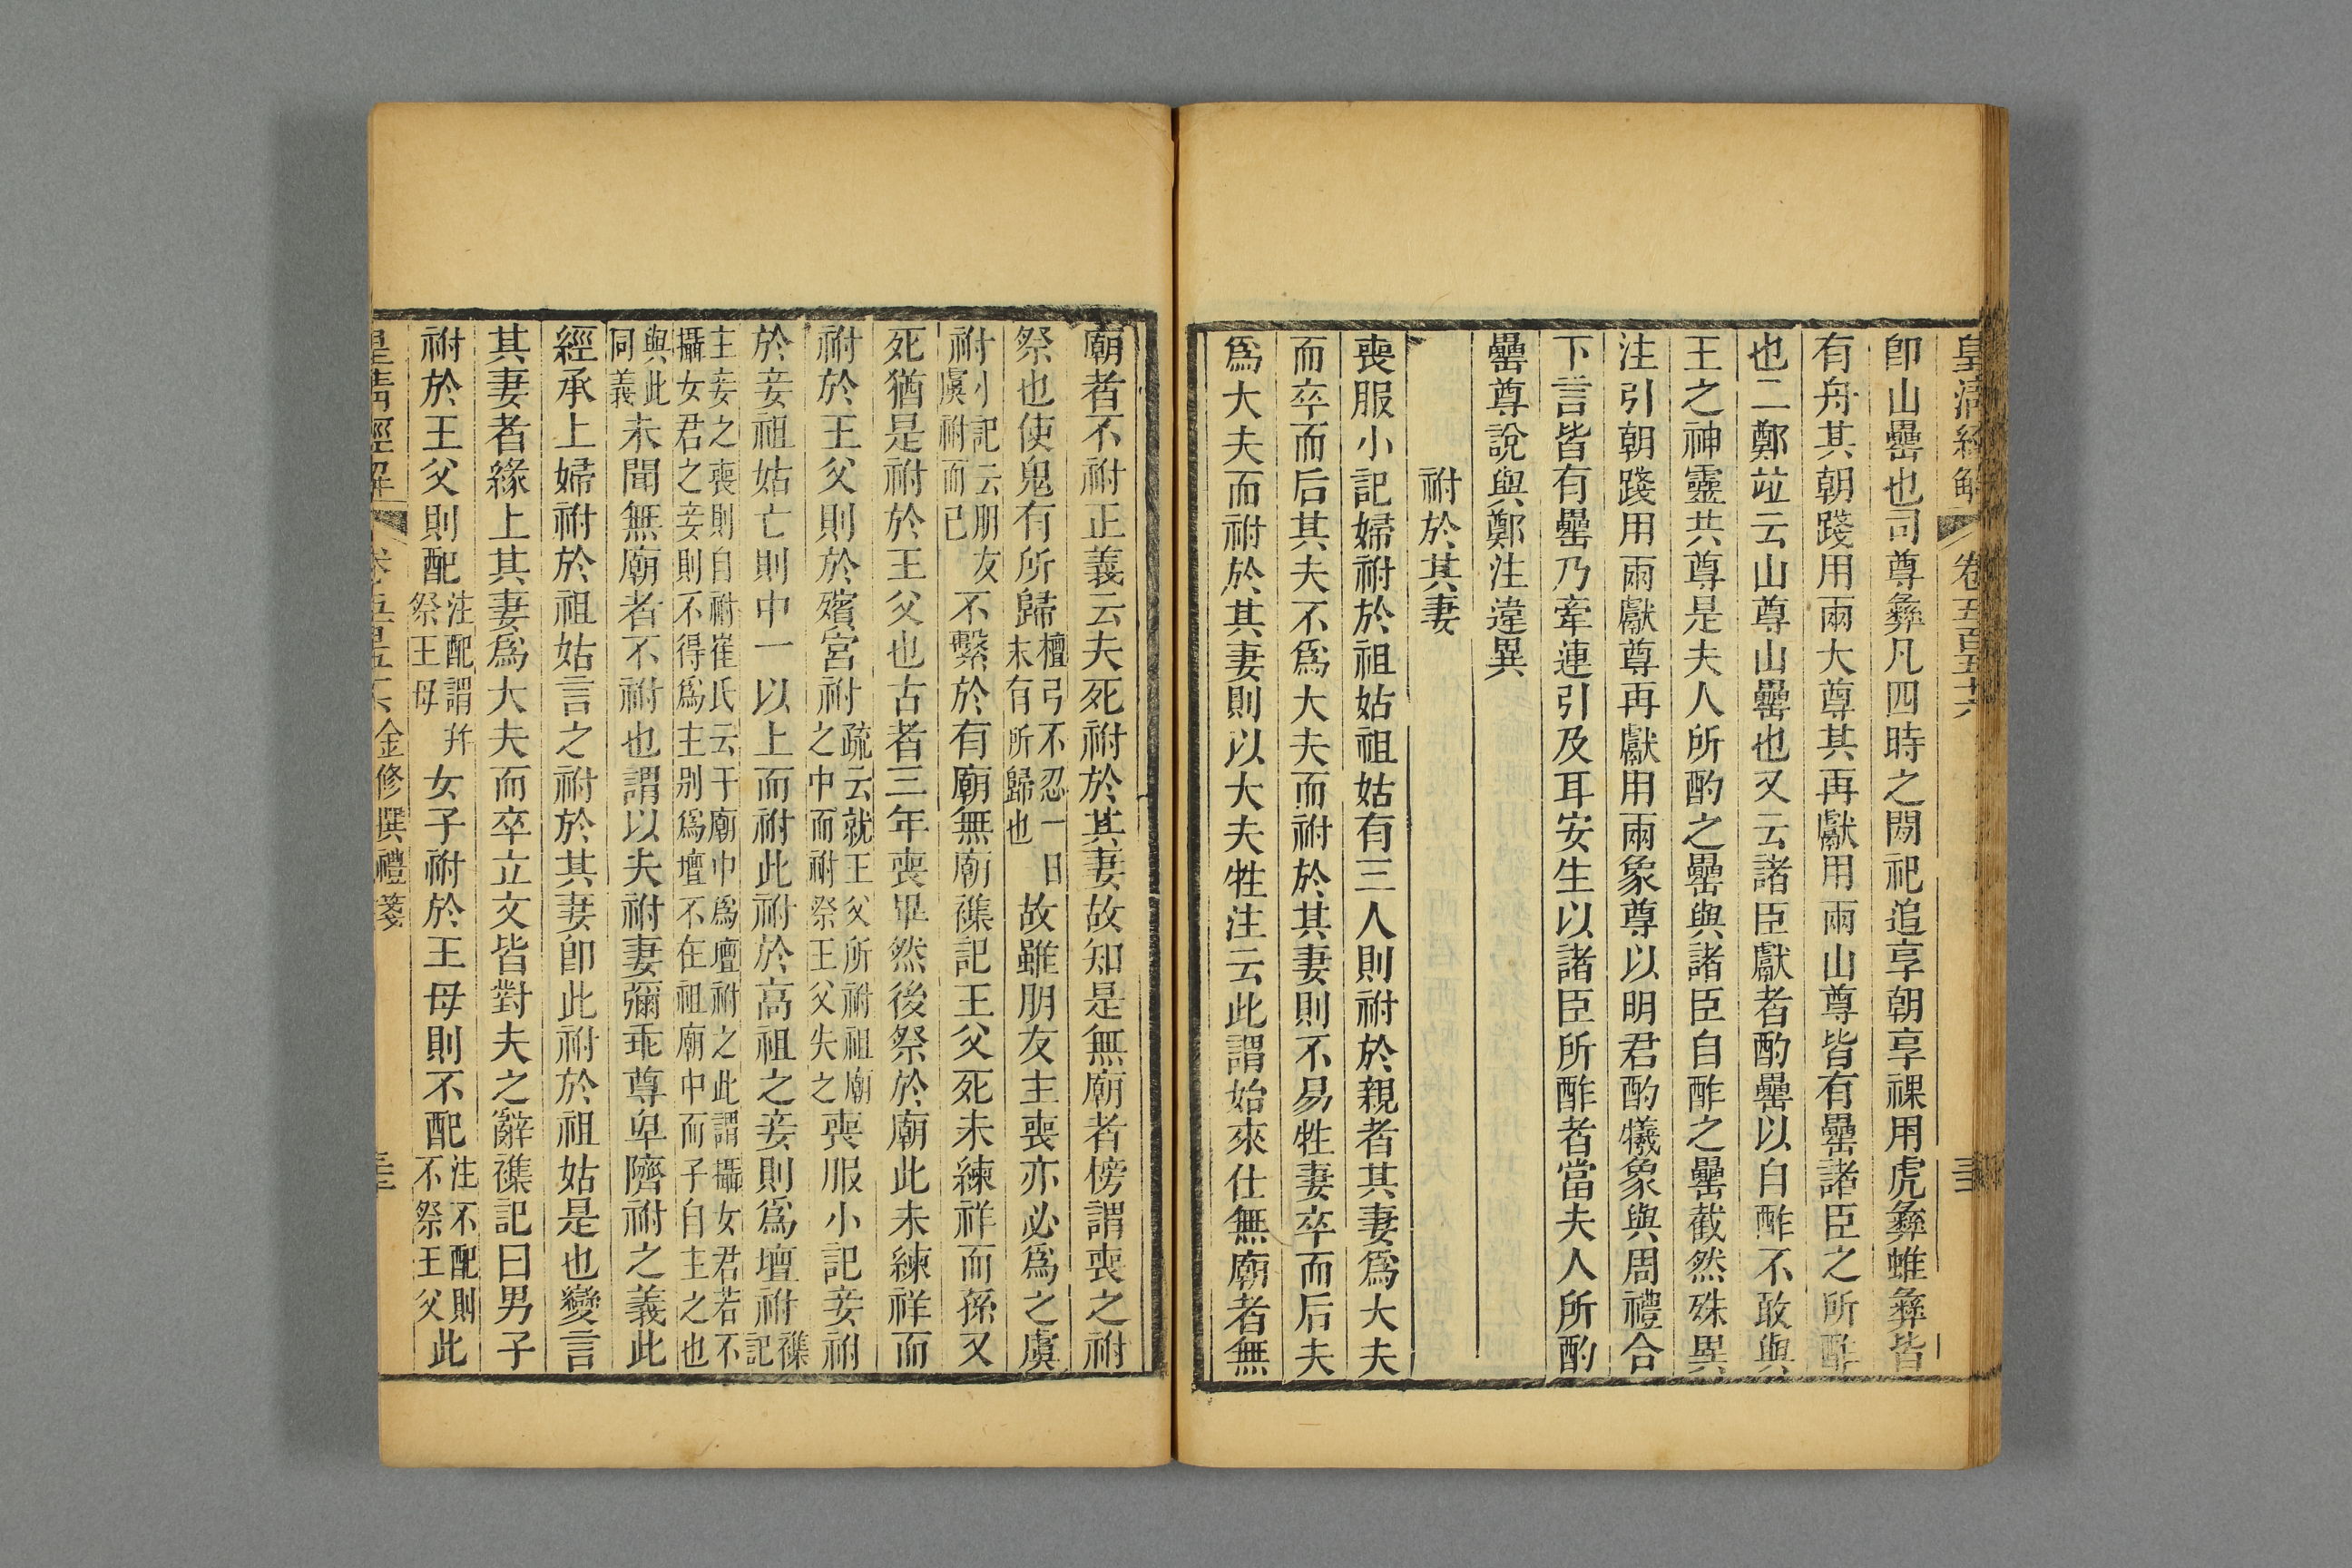 皇淸經解 卷五百五十六 三十三
卽山罍也司尊彝凡四時之閒祀追享朝享祼用虎彝蜼彝皆
有舟其朝踐用兩大尊其再獻用兩山尊皆有罍諸臣之所酢
也二鄭竝云山尊山罍也又云諸臣獻者酌罍以自酢不敢與
王之神靈共尊是夫人所酌之罍與諸臣自酢之罍截然殊異
注引朝踐用兩獻尊再獻用兩象尊以明君酌犧象與周禮合
下言皆有罍乃牽連引及耳安生以諸臣所酢者當夫人所酌
罍尊說與鄭注違異
祔於其妻
喪服小記婦祔於祖姑祖姑有三人則祔於親者其妻爲大夫
而卒而后其夫不爲大夫而祔於其妻則不易牲妻卒而后夫
爲大夫而祔於其妻則以大夫牲注云此謂始來仕無廟者無
廟者不祔正義云夫死祔於其妻故知是無廟者傍謂喪之祔
祭也使鬼有所歸檀弓不忍一日末有所歸也故雖朋友主喪亦必爲之虞
祔小記云朋友虞祔而已不繫於有廟無廟襍記王父死未練祥而孫又
死猶是祔於王父也古者三年喪畢然後祭於廟此未練祥而
祔於王父則於殯宮祔疏云就王父所祔祖廟之中而祔祭王父失之喪服小記妾祔
於妾祖姑亡則中一以上而祔此祔於高祖之妾則爲壇祔襍記
主妾之喪則自祔崔氏云于廟中爲壇祔之此謂攝女君若不攝女君之妾則不得爲主别爲壇不在祖廟中而子自主之也
與此同義未聞無廟者不祔也謂以夫祔妻彌乖尊卑隮祔之義此
經承上婦祔於祖姑言之祔於其妻卽此祔於祖姑是也變言
其妻者緣上其妻爲大夫而卒立文皆對夫之辭襍記曰男子
祔於王父則配注配謂幷祭王母女子祔於王母則不配注不配則不祭王父此
皇淸經解 金修撰禮箋